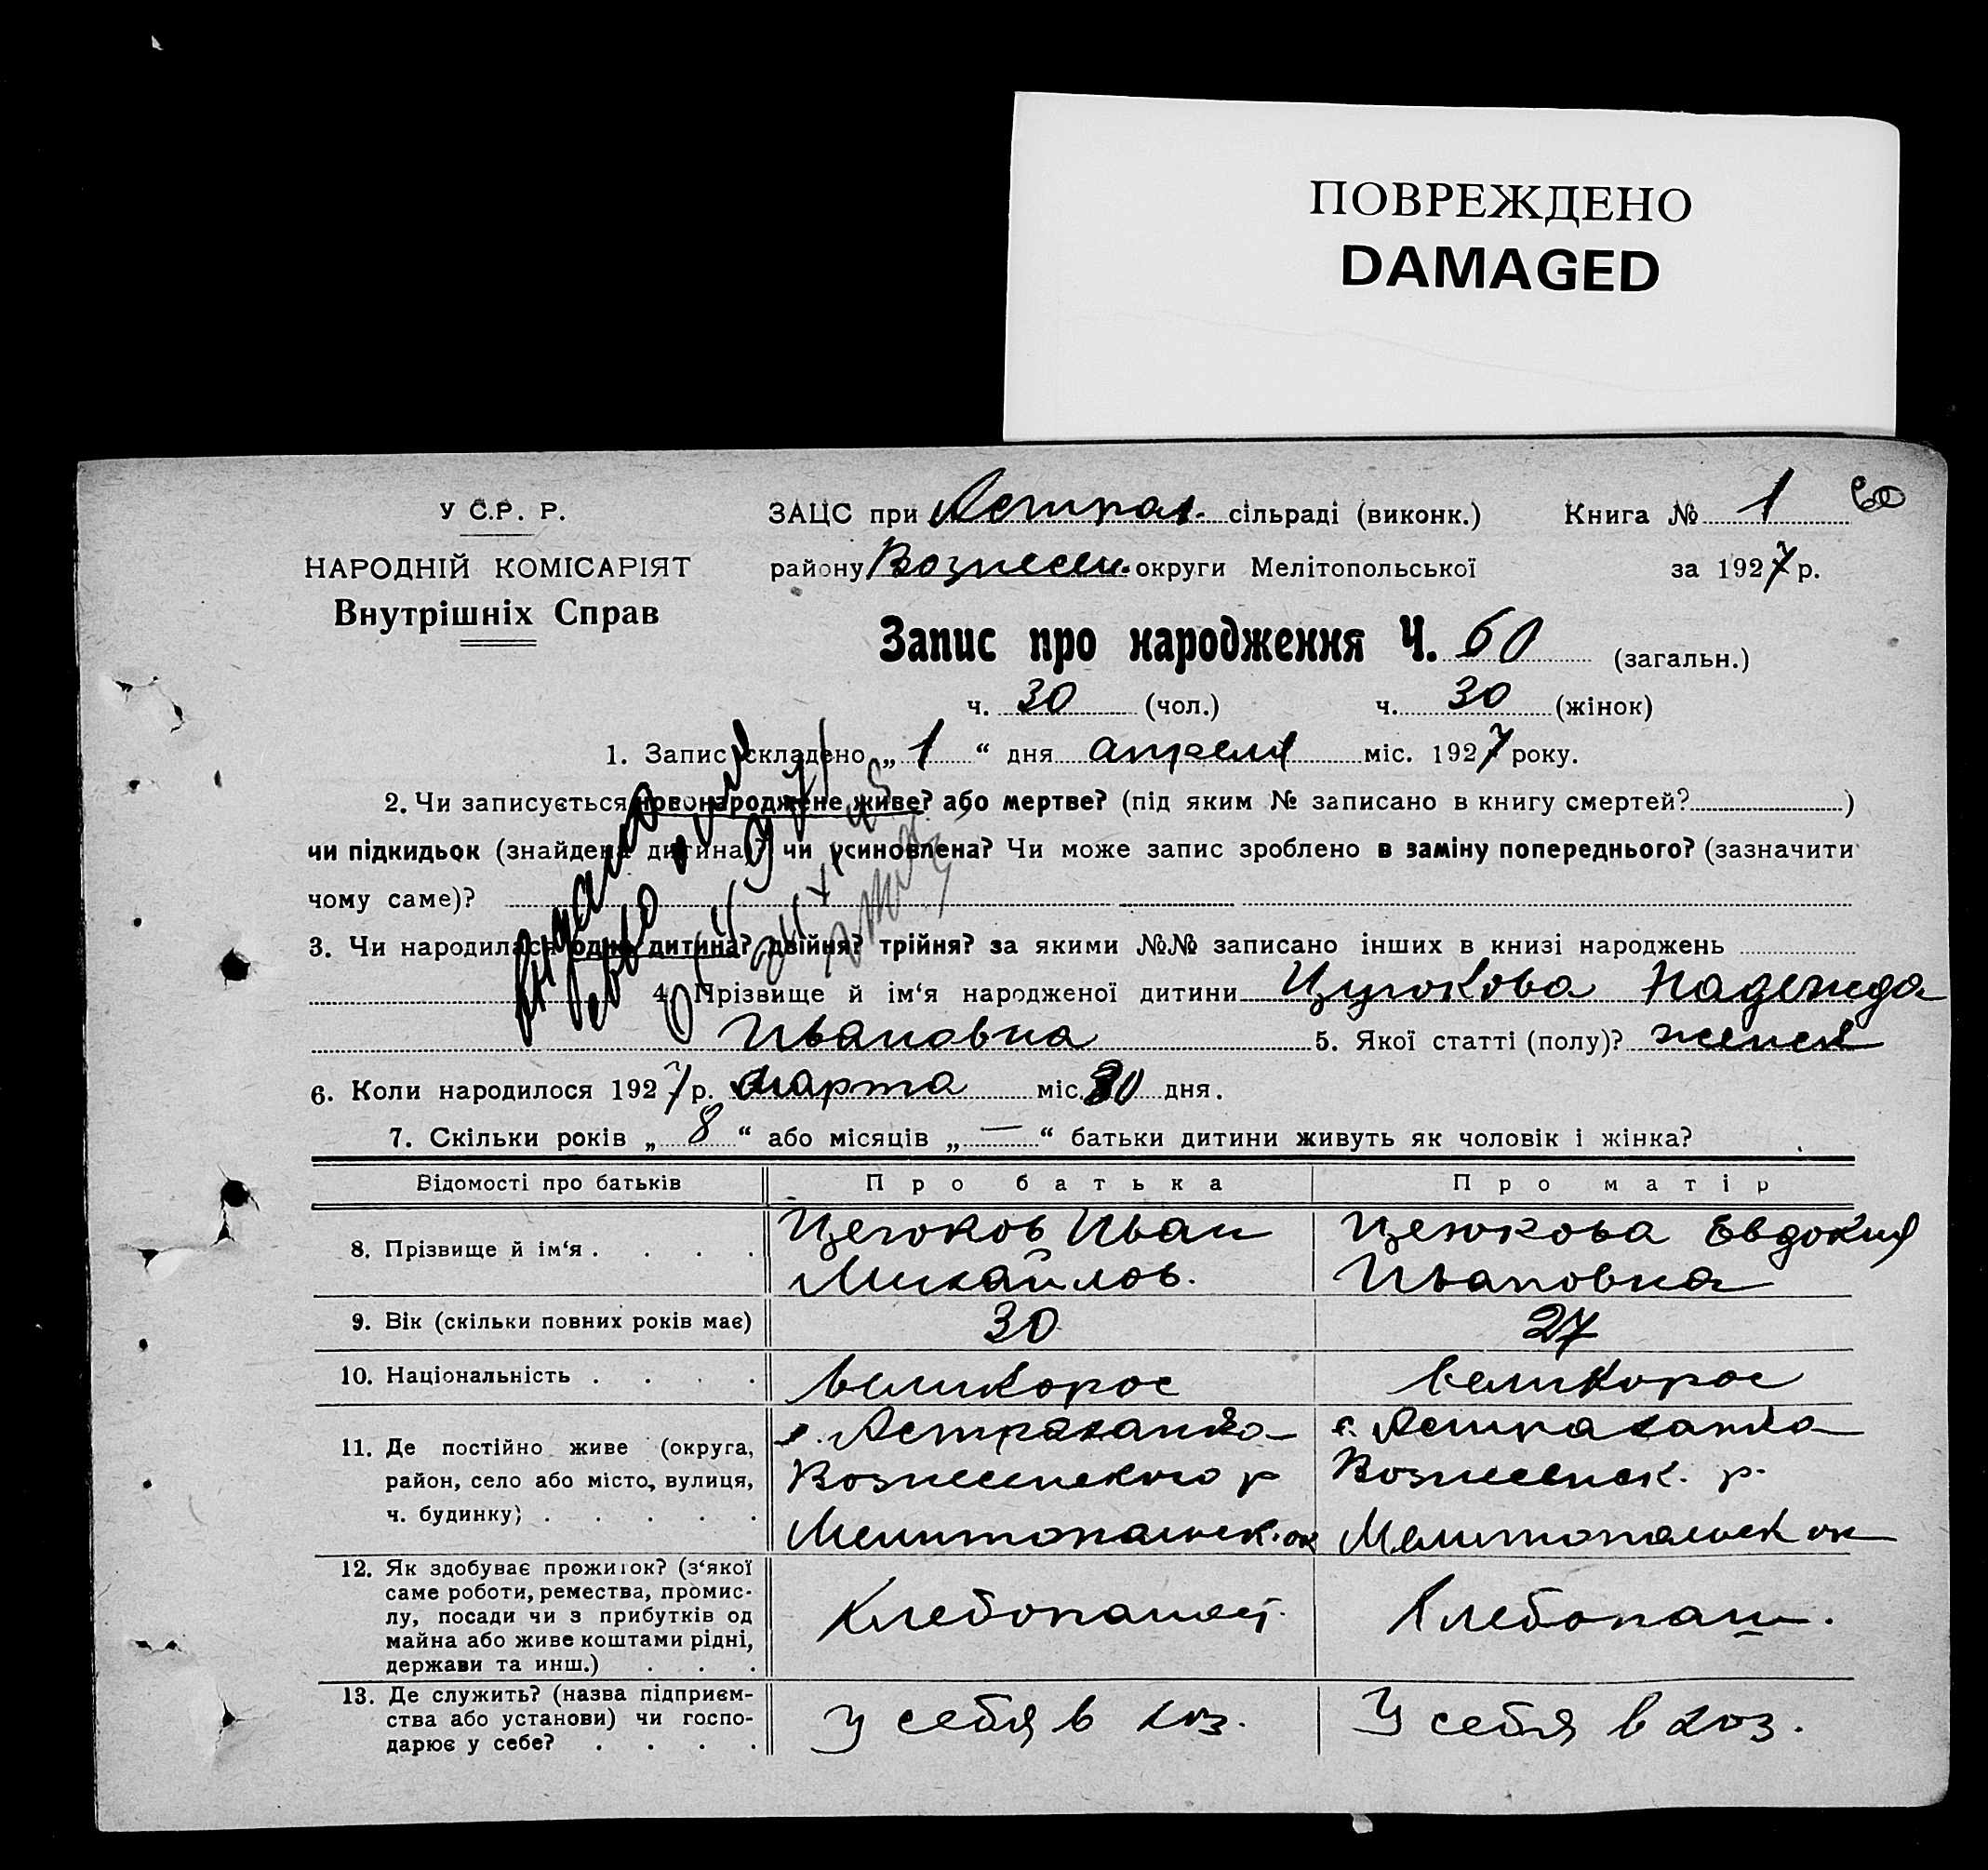 ПОВРЕЖДЕНО
DAMAGED
У С.Р. Р.
НАРОДНІЙ КОМІСАРІЯТ
Внутрішніх Справ
ЗАЦС при Астрах. сільраді (виконк.) Книга № 1 60
району Вознесен. округи Мелітопольської за 1927 р.
Запис про народження Ч. 60 (загальн.)
ч. 30 (чол.) ч. 30 (жінок)
1. Запис складено „ 1 “ дня апреля міс. 1927 року.
2. Чи записується новонароджене живе? або мертве? (під яким № записано в книгу смертей? )
чи підкидьок (знайдена дитина)? чи усиновлена? Чи може запис зроблено в заміну попереднього? (зазначити
чому саме)?
3. Чи народилася одна дитина? двійня? трійня? за якими №№ записано інших в книзі народжень
4. Прізвище й ім‘я народженої дитини Надежда
Ивановна 5. Якої статті (полу)? женск
6. Коли народилося 1927 р. марта міс. 30 дня.
7. Скільки років „ 8 “ або місяців „ — “ батьки дитини живуть як чоловік і жінка?
Відомості про батьків Про батька Про матір
8. Прізвище й ім‘я . . . . Иван
Михайлов.
Евдокия
Ивановна
9. Вік (скільки повних років має) 30 27
10. Національність . . . . великорос великорос
11. Де постійно живе (округа,
район, село або місто, вулиця,
ч. будинку) . . . . .
с. Астраханка
Вознесенского р
Мелитопольск. ок
с. Астраханка
Вознесенск. р.
Мелитопольск ок
12. Як здобуває прожиток? (з‘якої
саме роботи, ремества, промис-
лу, посади чи з прибутків од
майна або живе коштами рідні,
держави та инш.) . . .
Хлебопашец.
Хлебопаш.
13. Де служить? (назва підприєм-
ства або установи) чи госпо-
дарює у себе? . . . .
У себя в хоз.
У себя в хоз.